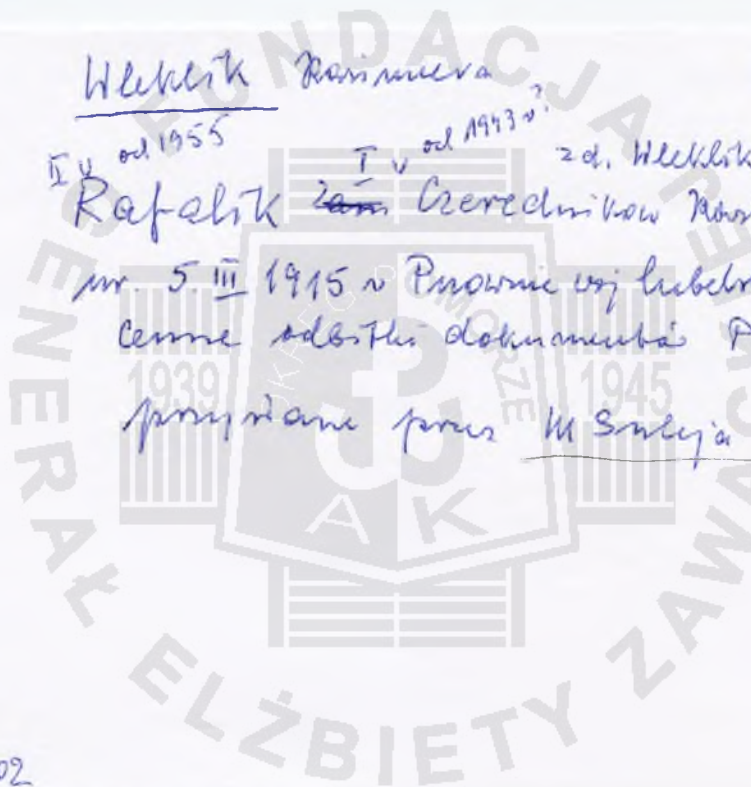 Wleklik Kazimiera
II v od 1955 I v od 1943 r? zd. Wleklik
Rafalik zam Czerednikow Kaz
ur. 5. III 1915 w Pnownie woj lubels
cenne odbitki dokumentów P
przysłane przez M Suleja
02
FUNDACJA GENERAŁ ELŻBIETY ZAWA
1939 1945
SKRECI O POMORZE
AK